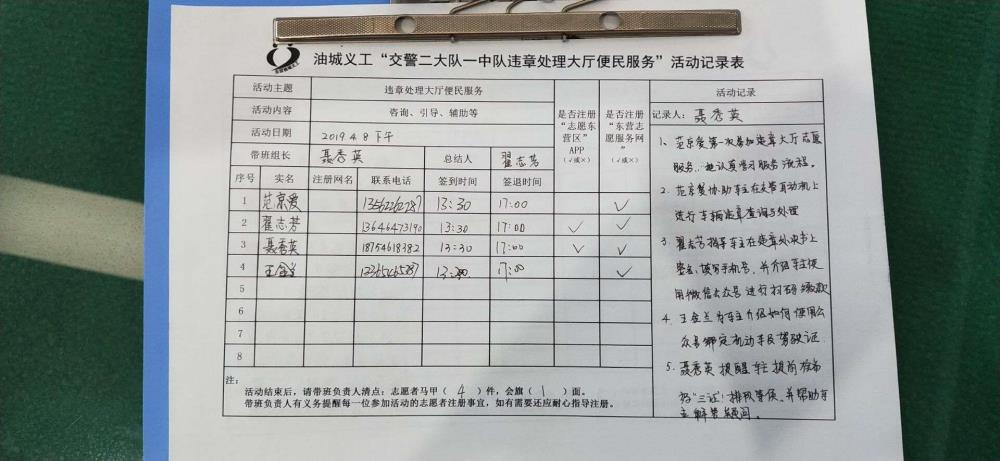 油城义工“交警二大队一中队违章处理大厅便民服务”活动记录表
活动主题 违章处理大厅便民服务
活动内容 咨询、引导、辅助等
活动日期 2019.4.8下午
带班组长 聂秀英 总结人 翟志芳
是否注册“志愿东营区”APP（√或×）
是否注册“东营志愿服务网”（√或×）
序号 实名 注册网名 联系电话 签到时间 签退时间
1 范京爱 13:30 17:00 √
2 翟志芳 13646473190 13:30 17:00 √ √
3 聂秀英 18754618382 13:30 17:00 √ √
4 13:30 17:00 √
5
6
7
8
注：
活动结束后，请带班负责人清点：志愿者马甲（4）件，会旗（1）面。
带班负责人有义务提醒每一位参加活动的志愿者注册事宜，如有需要还应耐心指导注册。
活动记录
记录人：聂秀英
1、范京爱第一次参加违章大厅志愿
服务，她认真学习服务流程。
2、范京爱协助车主在交警自动机上
进行车辆违章查询与处理
3、翟志芳指导车主在违章处决书上
签名、填写手机号，并介绍车主使
用微信公众号进行扫码缴款
4、为车主介绍如何使用公
众号绑定机动车及驾驶证
5、聂秀英提醒车主提前准备
好“三证”排队等候，并帮助车
主解答疑问。